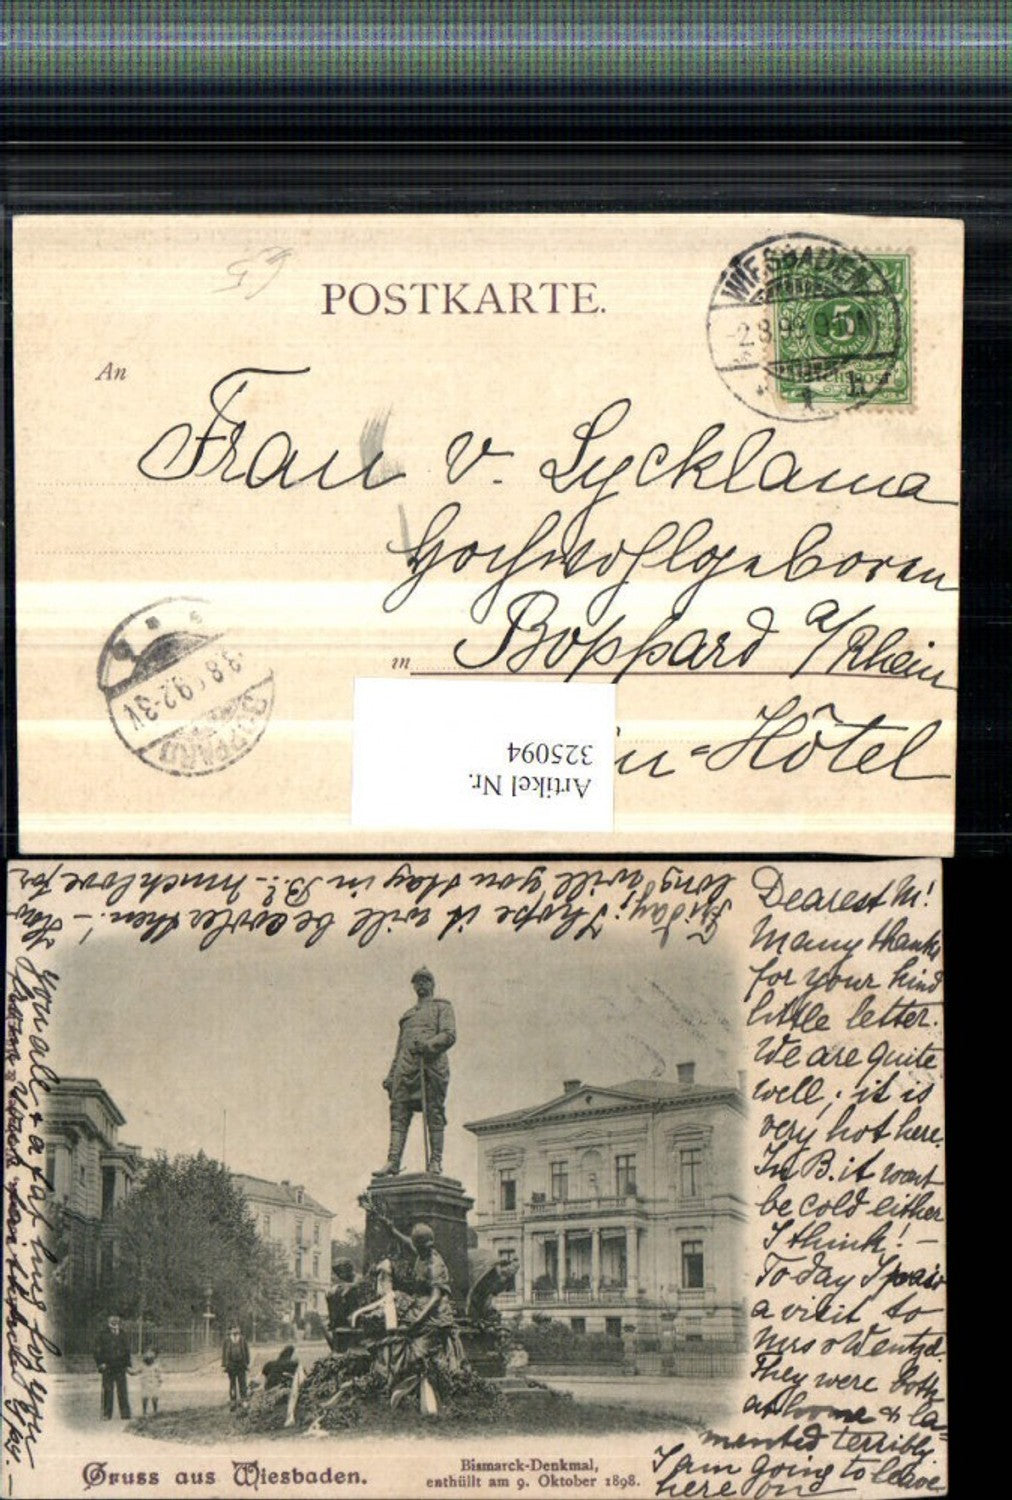 POSTKARTE.
An
WIESBADEN
5
Frau v. Lycklama
Hochwohlgeboren
in Boppard a/Rhein
Hôtel
BOPPARD
Artikel Nr.
325094
Dearest M!
Many thanks
for your kind
little letter.
We are quite
well; it is
very hot here.
In B. it wont
be cold either
I think! –
Today I paid
a visit to
Mrs v Wentzel.
They were both
at home & la-
mented terribly
I am going to leave
here on
Friday; I hope it will be cooler then! – How
long will you stay in B!? – Much love for
you all & a fat hug for you
from your
Gruss aus Wiesbaden.
Bismarck-Denkmal,
enthüllt am 9. Oktober 1898.